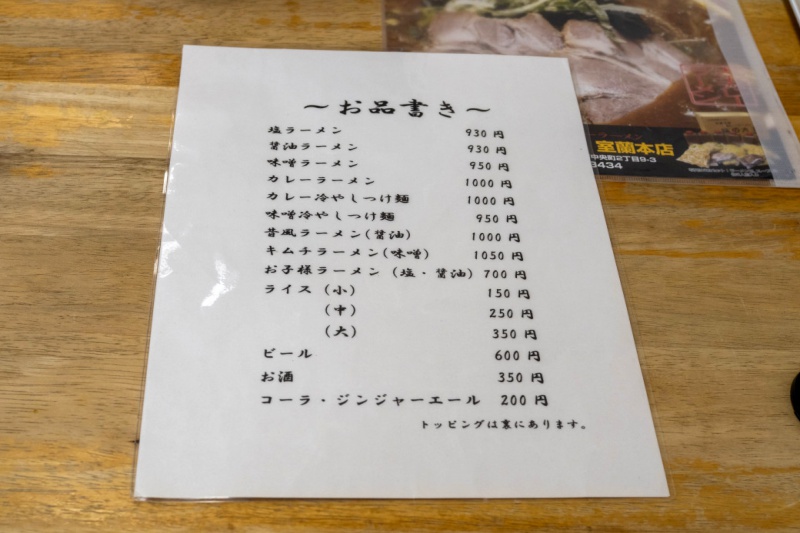 ～お品書き～
塩ラーメン 930 円
醤油ラーメン 930 円
味噌ラーメン 950 円
カレーラーメン 1000 円
カレー冷やしつけ麺 1000 円
味噌冷やしつけ麺 950 円
昔風ラーメン(醤油) 1000 円
キムチラーメン(味噌) 1050 円
お子様ラーメン (塩・醤油) 700 円
ライス (小) 150 円
(中) 250 円
(大) 350 円
ビール 600 円
お酒 350 円
コーラ・ジンジャーエール 200 円
トッピングは裏にあります。
ーラーメン
室蘭本店
中央町2丁目9-3
3434